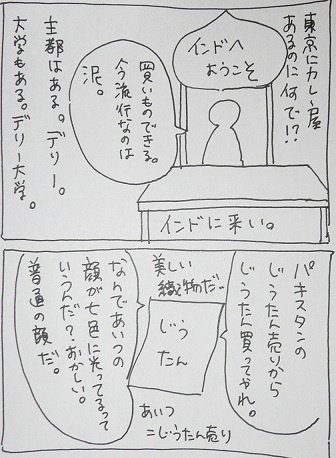 東京にカレー屋
あるのに何で!?
インドへ
ようこそ
買いものできる。
今流行なのは
泥。
主都はある。デリー。
大学もある。デリー大学。
インドに来い。
パキスタンの
じうたん売りから
じうたん買ってやれ。
美しい
織物だ…
じう
たん
あいつ
=じうたん売り
なんであいつの
顔が七色に光ってるって
いうんだ?おかしい。
普通の顔だ。